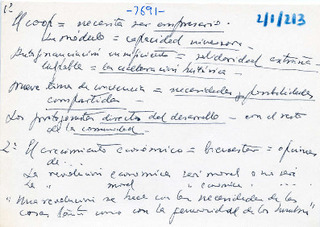 1º -7691- 2/1/213
El coop = necesita ser empresario.
Un módulo = capacidad inversora.
Autofinanciación insuficiente = solidaridad
= la aceleración histórica
Nueva toma de conciencia = necesidades y posibilidades
compartidas
Los protagonistas directos del desarrollo - con el resto
de la comunidad
2º El crecimiento económico = bienestar = opiniones
de...
La revolución económica será moral o no será
La " moral " económica " ...
"Una revolución se hace con las necesidades de las
cosas tanto como con la generosidad de los hombres"